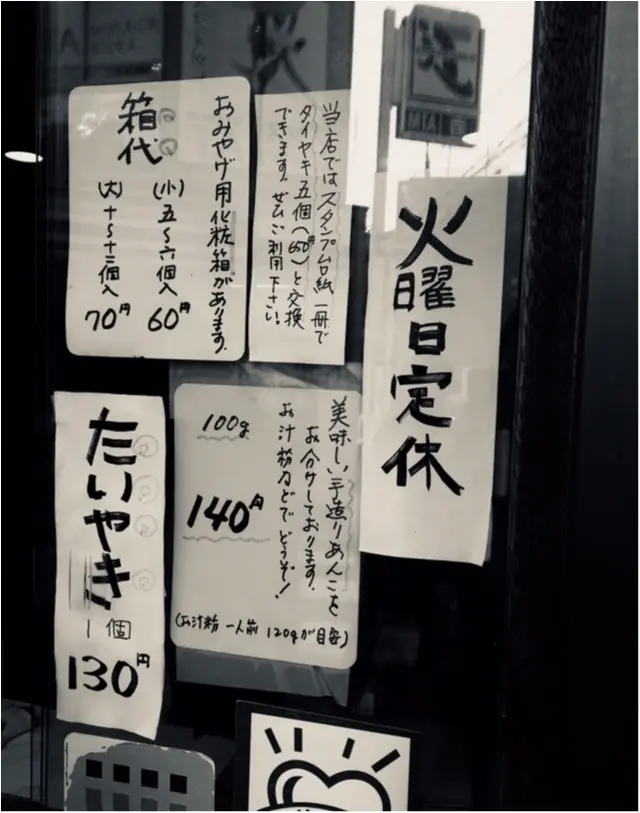 火曜日定休
当店ではスタンプ台紙一冊で
タイヤキ五個(650円)と交換
できます。ぜひご利用下さい。
おみやげ用化粧箱があります。
箱代
(小)五〜六個入
60円
(大)十〜十三個入
70円
美味しい手造りあんこを
お分けしております。
お汁粉などでどうぞ!
100g
140円
(お汁粉一人前120gが目安)
たいやき
1個
130円